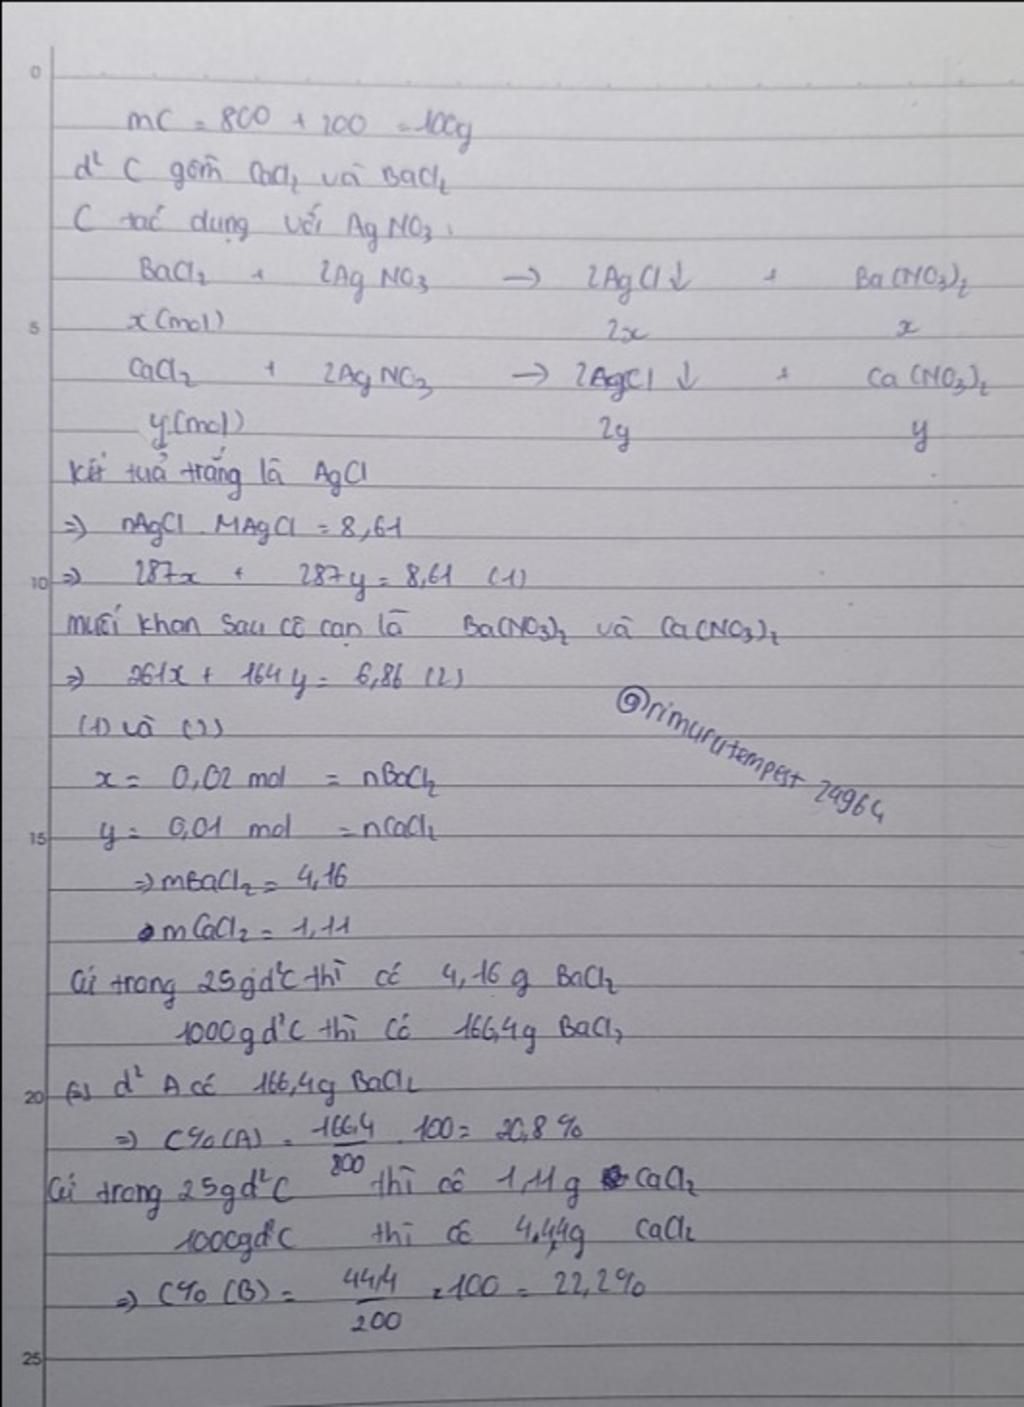 0
mC = 800 + 200 = 100g
d² C gồm CaCl₂ và BaCl₂
C tác dụng với AgNO₃:
BaCl₂ + 2AgNO₃ → 2AgCl↓ + Ba(NO₃)₂
5 x(mol) 2x x
CaCl₂ + 2AgNO₃ → 2AgCl↓ + Ca(NO₃)₂
y(mol) 2y y
Kết tuả trắng là AgCl
⇒ nAgCl . MAgCl = 8,61
10 ⇒ 287x + 287y = 8,61 (1)
muối khan sau cô cạn là Ba(NO₃)₂ và Ca(NO₃)₂
⇒ 261x + 164y = 6,86 (2)
(1) và (2)
x = 0,02 mol = nBaCl₂
@rimurutempest 24964
15 y = 0,01 mol = nCaCl₂
⇒ mBaCl₂ = 4,16
mCaCl₂ = 1,11
Cứ trong 25gd²C thì có 4,16g BaCl₂
1000gd²C thì có 166,4g BaCl₂
20 d² A có 166,4g BaCl₂
⇒ C%(A) = 166,4/800 . 100 = 20,8%
Cứ trong 25gd²C thì có 1,11g CaCl₂
1000gd²C thì có 4,44g CaCl₂
⇒ C%(B) = 44,4/200 . 100 = 22,2%
25